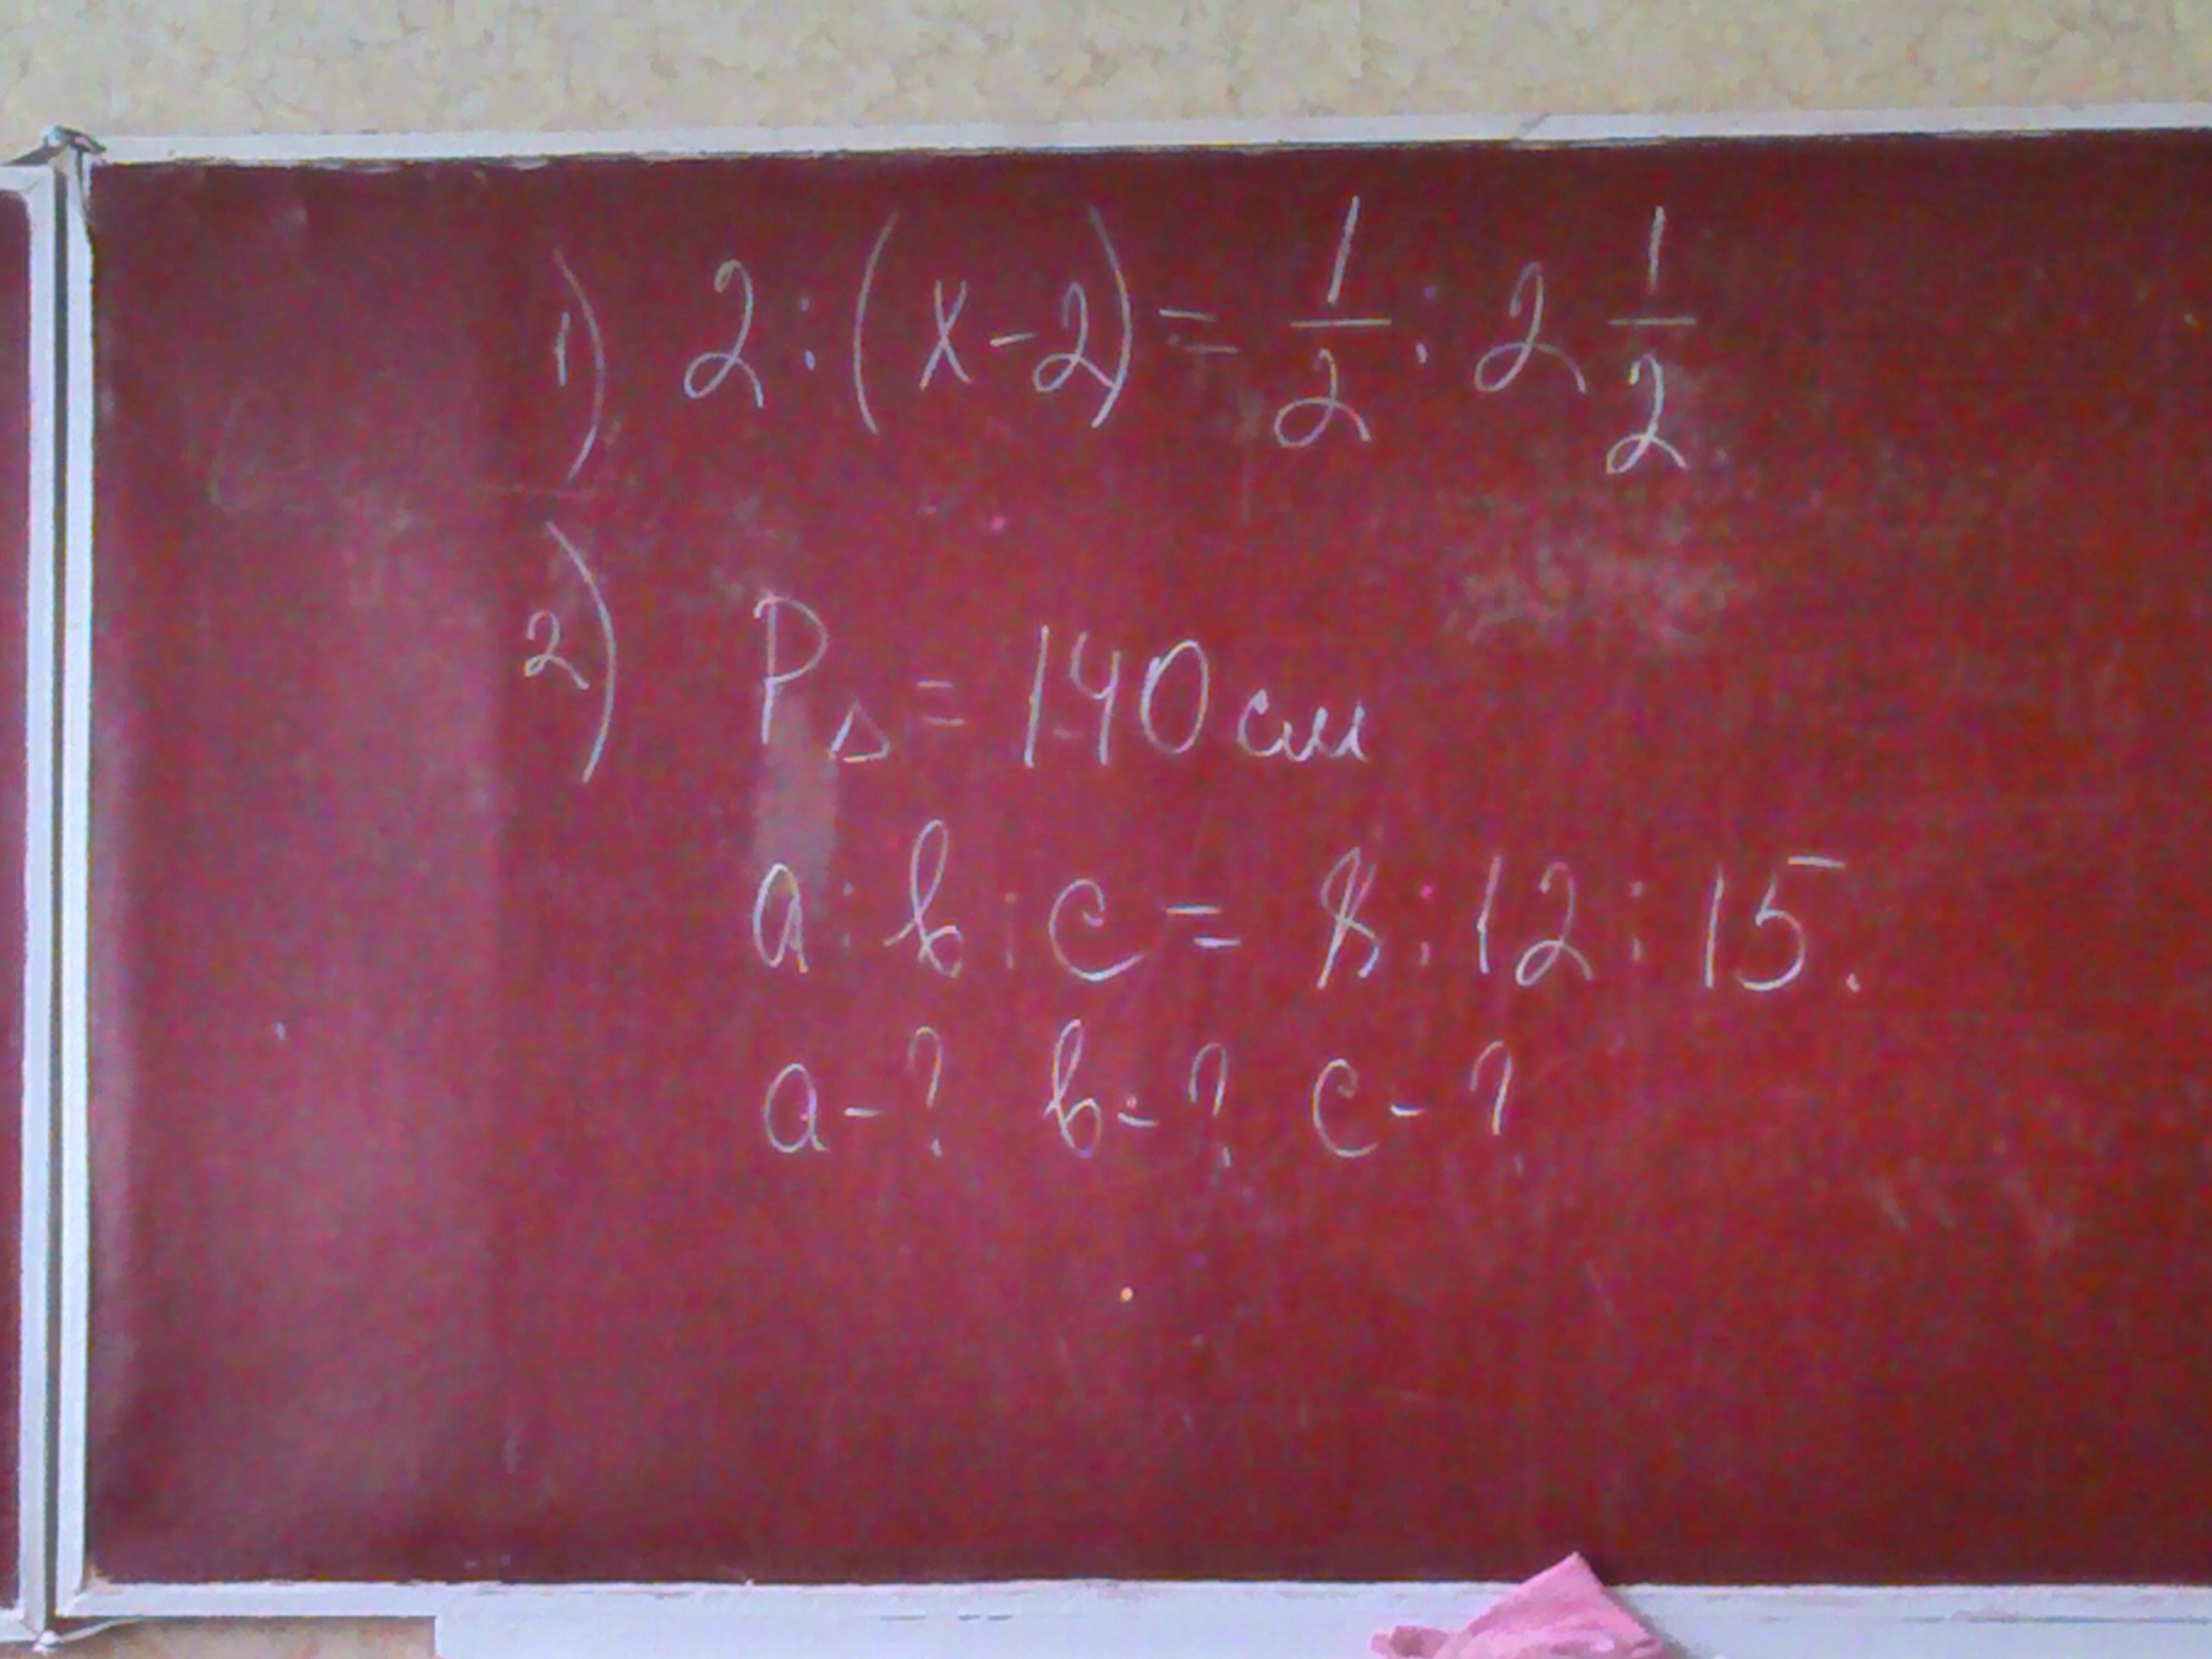 1) 2:(x-2)=1/2:2 1/2
2) P△=140см
a:b:c=8:12:15.
a-? b-? c-?